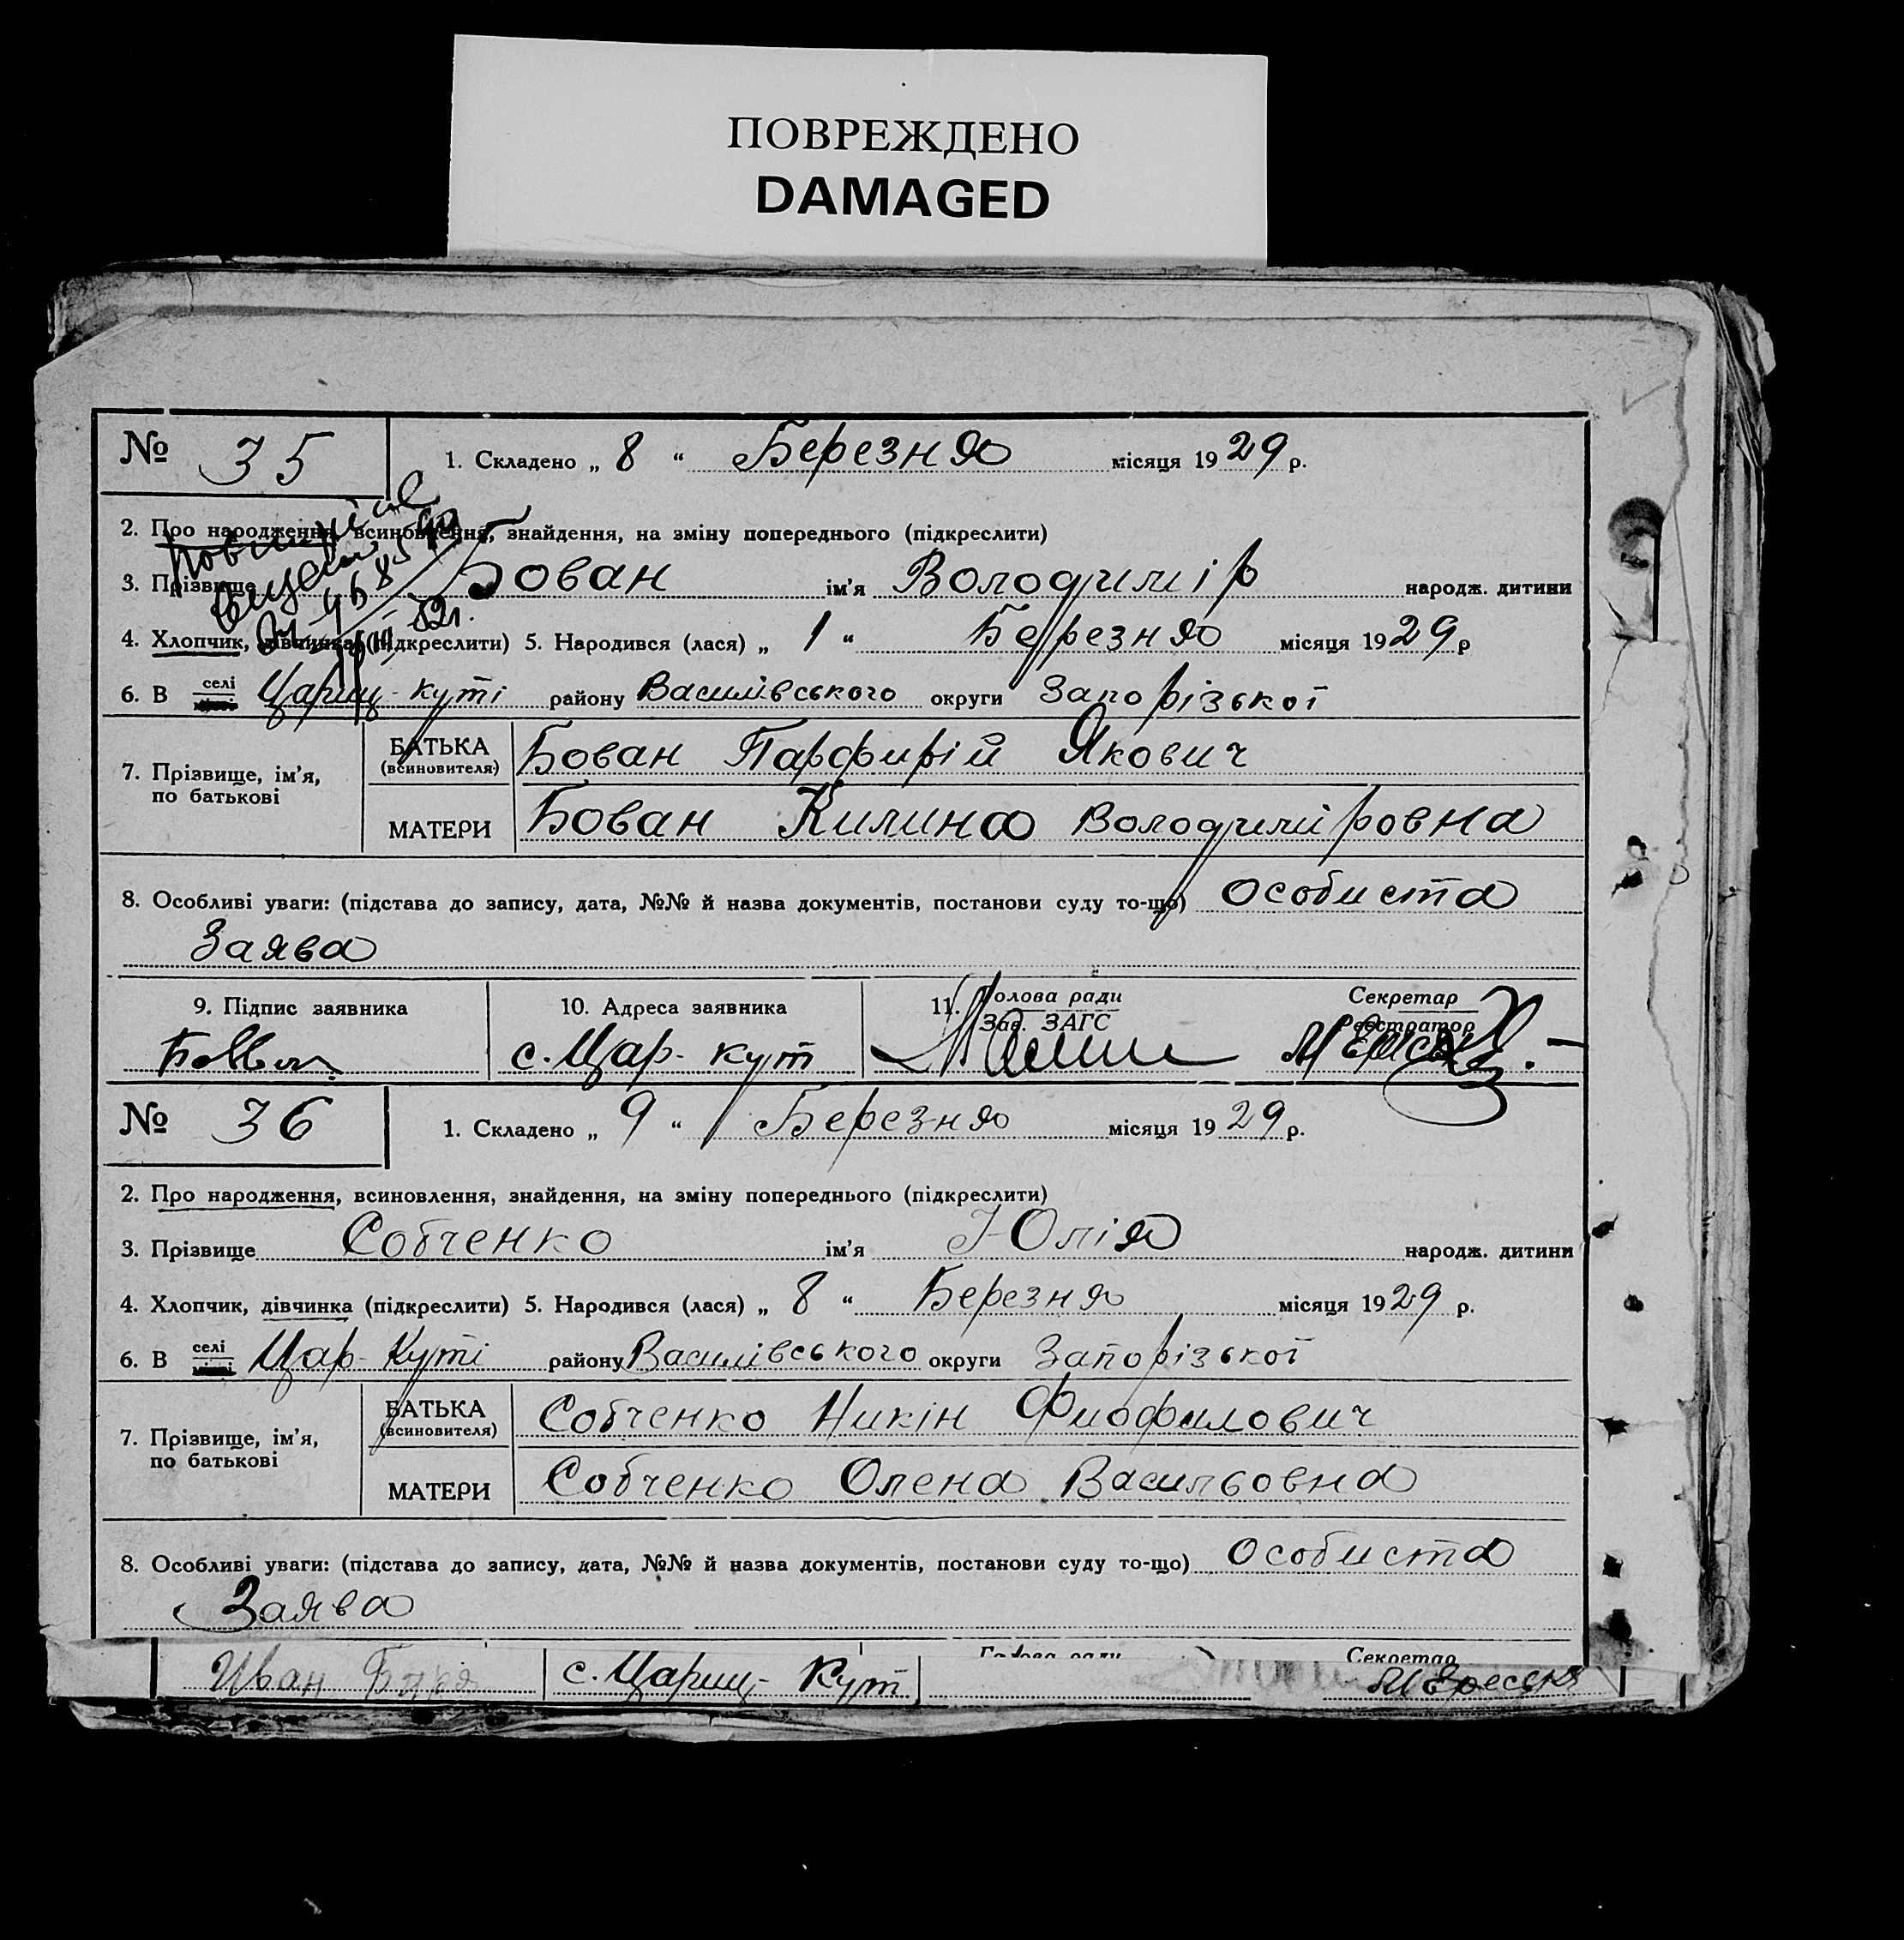 ПОВРЕЖДЕНО
DAMAGED
№ 35
1. Складено „ 8 “ Березня місяця 1929 р.
2. Про народження, всиновлення, знайдення, на зміну попереднього (підкреслити)
3. Прізвище Бован ім’я Володимір народж. дитини
4. Хлопчик, дівчинка (підкреслити) 5. Народився (лася) „ 1 “ Березня місяця 1929 р
6. В селі Цариц-куті району Василівського округи Запорізької
7. Прізвище, ім’я, по батькові
БАТЬКА (всиновителя) Бован Парфирій Якович
МАТЕРИ Бован Килина Володиміровна
8. Особливі уваги: (підстава до запису, дата, №№ й назва документів, постанови суду то-що) особиста
Заява
9. Підпис заявника 10. Адреса заявника 11. Голова ради Секретар
Зав. ЗАГС Реєстратор
с. Цар-кут
№ 36
1. Складено „ 9 “ Березня місяця 1929 р.
2. Про народження, всиновлення, знайдення, на зміну попереднього (підкреслити)
3. Прізвище Собченко ім’я Юлія народж. дитини
4. Хлопчик, дівчинка (підкреслити) 5. Народився (лася) „ 8 “ Березня місяця 1929 р.
6. В селі Цар-Куті району Василівського округи Запорізької
7. Прізвище, ім’я, по батькові
БАТЬКА (всиновителя) Собченко Никін Фиофилович
МАТЕРИ Собченко Олена Васильовна
8. Особливі уваги: (підстава до запису, дата, №№ й назва документів, постанови суду то-що) Особиста
Заява
Голова ради Секретар
Иван с. Цариц-Кут